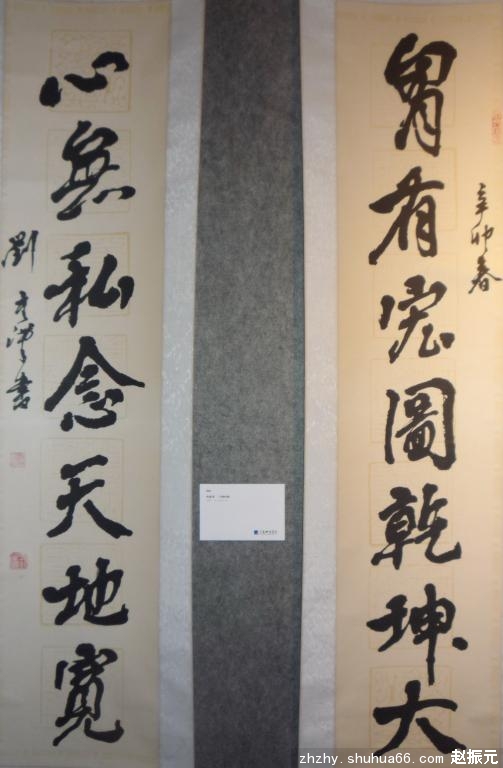 辛卯春
胷有宏圖乾坤大
心無私念天地寬
劉
書
zhzhy.shuhua66.com 赵振元